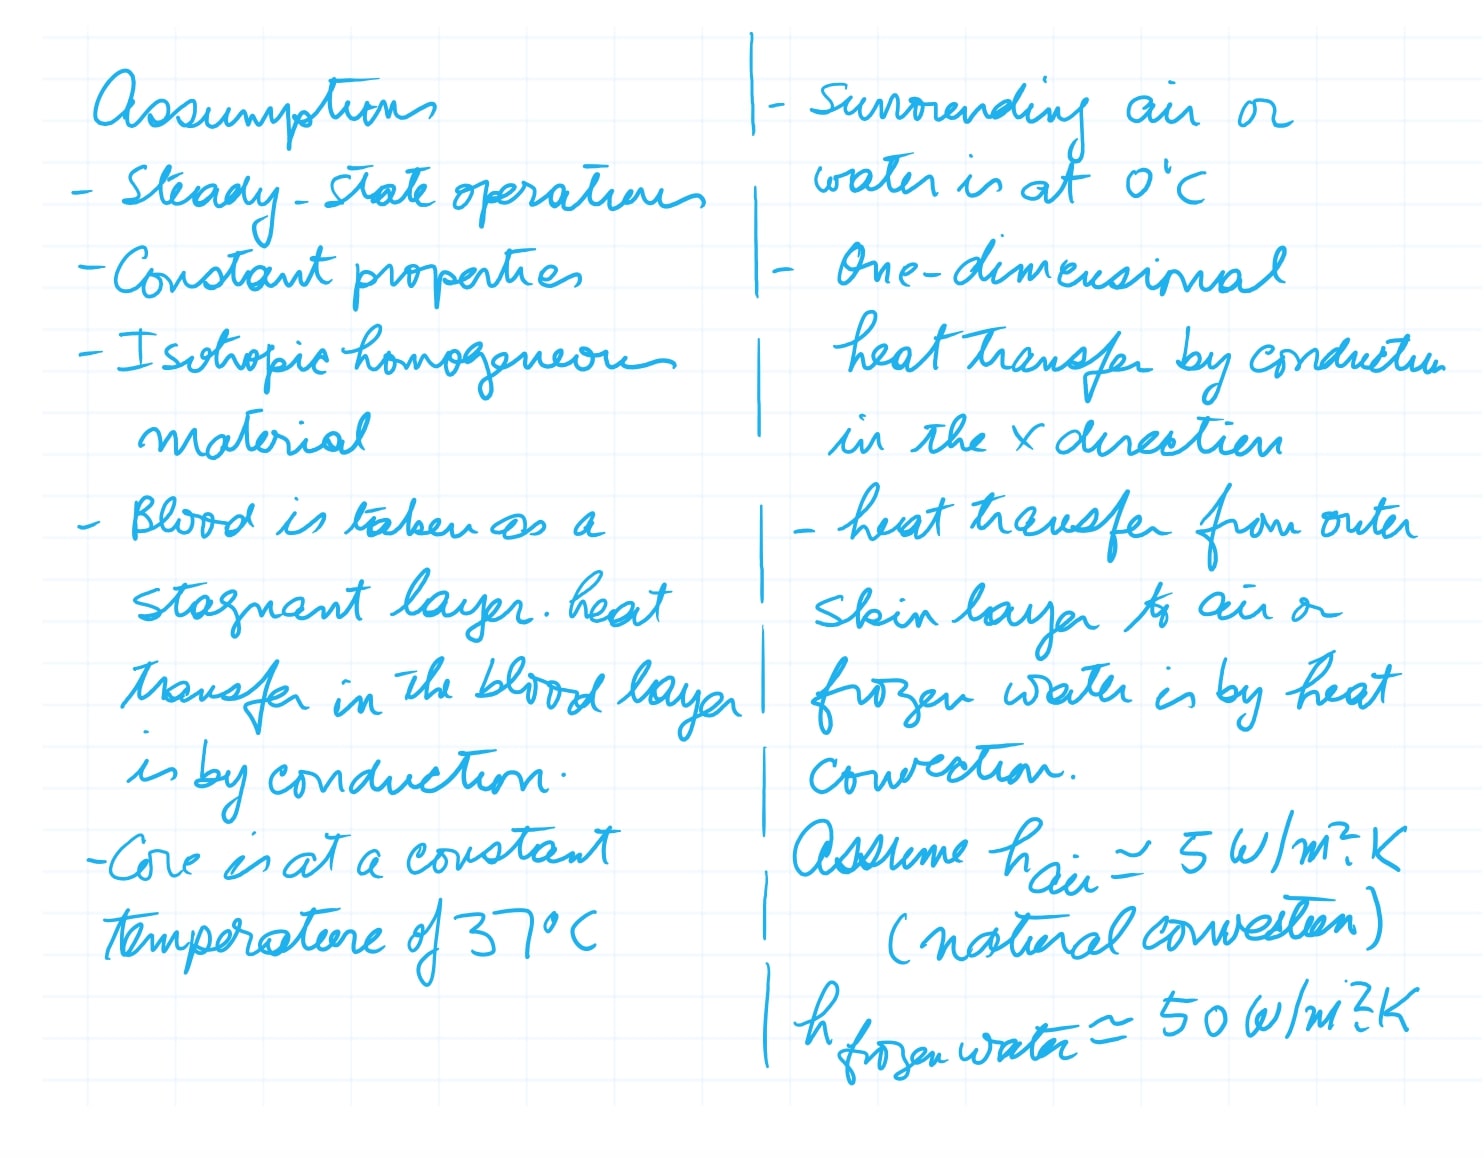 Assumptions
- Steady-state operations
- Constant properties
- Isotropic homogeneous
material
- Blood is taken as a
stagnant layer. heat
transfer in the blood layer
is by conduction.
- Core is at a constant
temperature of 37°C
- Surrounding air or
water is at 0°C
- One-dimensional
heat transfer by conduction
in the x direction
- heat transfer from outer
skin layer to air or
frozen water is by heat
convection.
Assume h air ≃ 5 W/m².K
(natural convection)
h frozen water ≃ 50 W/m².K